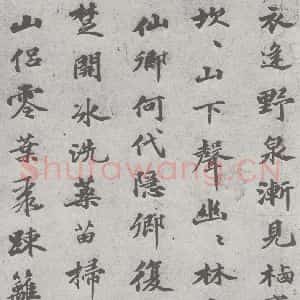 衣逢野泉漸見栖
坎、山下聲幽、林
仙鄉何代隱鄉復
楚開冰洗藥苗掃
山侶零葉來踈籬
Shufawang.CN